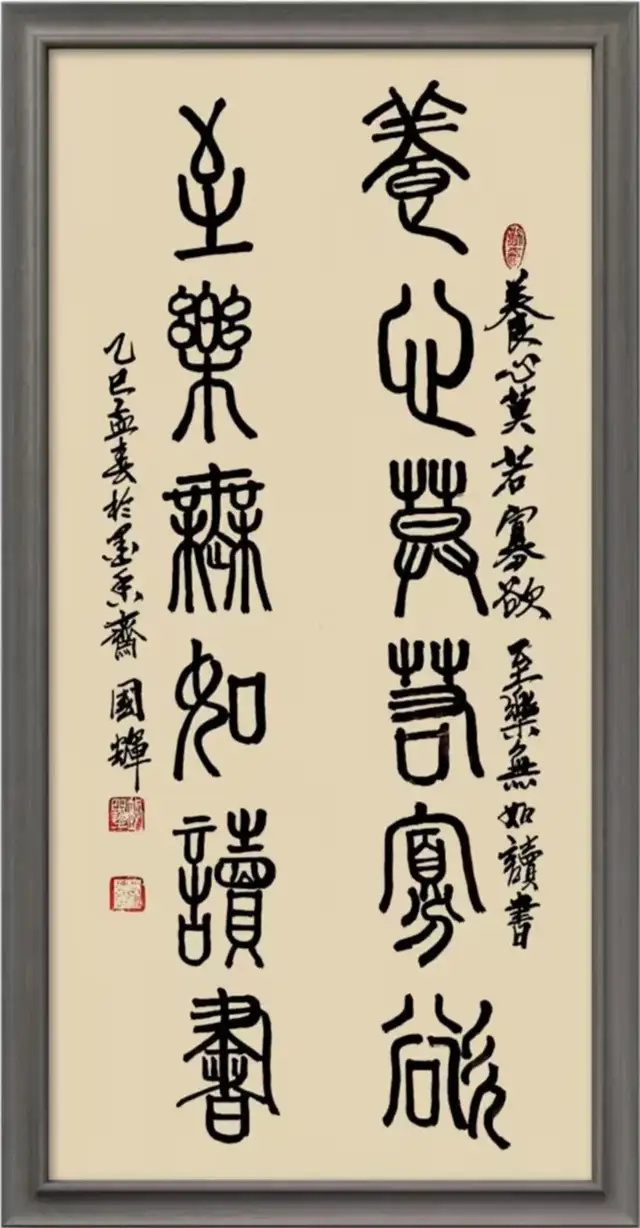 養心莫若寡欲至樂無如讀書
養心莫若寡欲
至樂無如讀書
乙巳孟春於墨香齋國輝